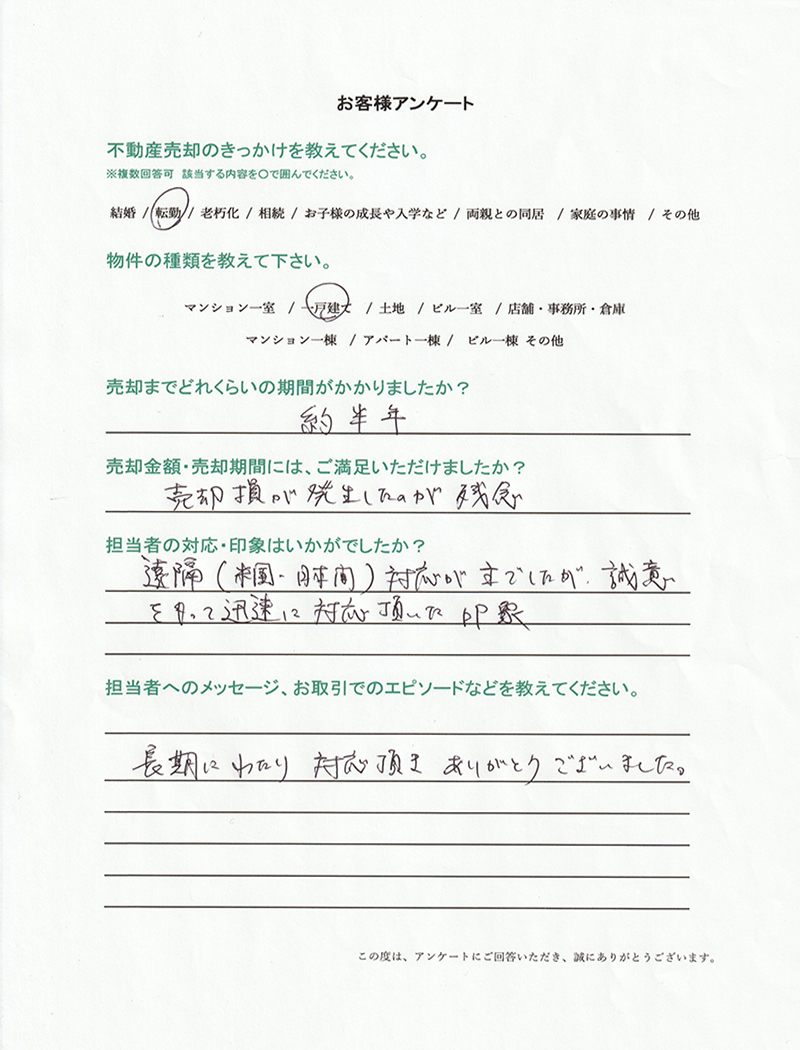 お客様アンケート
不動産売却のきっかけを教えてください。
※複数回答可 該当する内容を〇で囲んでください。
結婚 / 転勤 / 老朽化 / 相続 / お子様の成長や入学など / 両親との同居 / 家庭の事情 / その他
物件の種類を教えて下さい。
マンション一室 / 一戸建て / 土地 / ビル一室 / 店舗・事務所・倉庫
マンション一棟 / アパート一棟 / ビル一棟 その他
売却までどれくらいの期間がかかりましたか？
約半年
売却金額・売却期間には、ご満足いただけましたか？
売却損が発生したのが残念
担当者の対応・印象はいかがでしたか？
遠隔(米国・日本間)対応が でしたが、誠意
をもって迅速に対応頂いた印象
担当者へのメッセージ、お取引でのエピソードなどを教えてください。
長期にわたり 対応頂き ありがとうございました。
この度は、アンケートにご回答いただき、誠にありがとうございます。